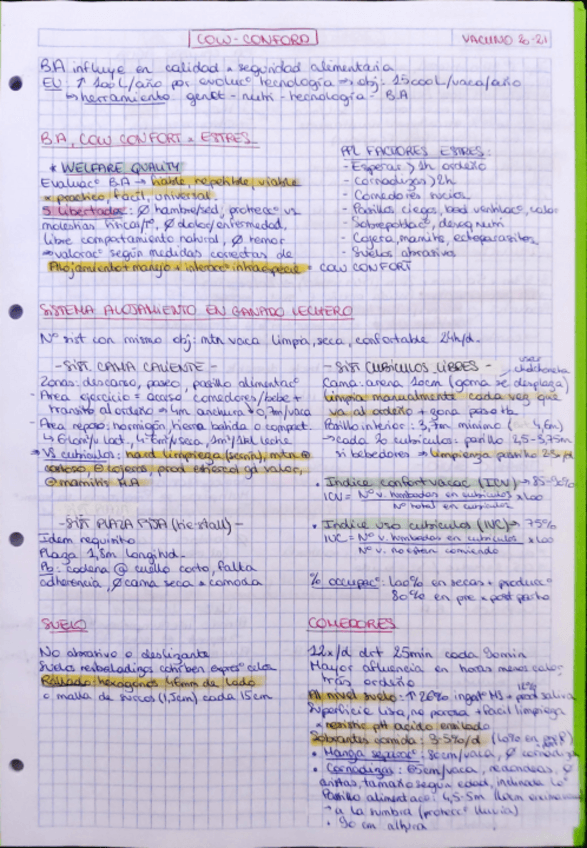 COW-CONFORD
VACUNO 20-21
BA influye en calidad y seguridad alimentaria
EU: ↑ 100L/año por evoluc° tecnología → obj: 15000L/vaca/año
↳ herramienta genét - nutri - tecnología - BA
BA, COW CONFORT y ESTRES
* WELFARE QUALITY
Evaluac° BA → fiable, repetible, viable
y práctico, fácil, universal
5 libertades: Ø hambre/sed, protecc° vs
molestias físicas/tª, Ø dolor/enfermedad,
libre comportamiento natural, Ø temor
→ valorac° según medidas correctas de
Alojamiento + manejo + interacc° intraespecie = COW CONFORT
PPL FACTORES ESTRES:
- Esperar > 1h ordeño
- Cornadizas > 2h
- Comedores sucios
- Pasillos ciegos, bad ventilac°, calor
- Sobrepoblac°, deseq nutri
- Cojera, mamitis, ectoparasitos
- Suelos abrasivos
SISTEMA ALOJAMIENTO EN GANADO LECHERO
Nº sist con mismo obj: mtn vaca limpia, seca, confortable 24h/d.
- SIST. CAMA CALIENTE -
Zonas: descanso, paseo, pasillo alimentac°
- Area ejercicio = acceso comedores/bebe +
transito al ordeño → 4m anchura
- Area reposo: hormigón, tierra batida o compact.
→ VS cubículos: hard limpieza, mtn
costoso, ⊖ cojeras, prod estiércol gd valor,
⊕ mamitis MA
- SIST CUBICULOS LIBRES -
Cama: arena 10cm (goma se desplaza)
limpia manualmente cada vez que
va al ordeño + goma pasota
Pasillo interior: 3,7m mínimo
→ cada 20 cubículos: pasillo 2,5-3,75m
si bebederos → limpieza pasillo
• Indice confort vacac (ICV) → 85-90%
ICV = Nº v. tumbadas en cubículos x 100
Nº total en cubículos
• Indice uso cubículos (IUC) → 75%
IUC = Nº v. tumbadas en cubículos x 100
Nº v. no están comiendo
% ocupac°: 100% en secas + producc°
80% en pre y post parto
- SIST PLAZA FIJA (tie-stall) -
Idem requisito
Plaza 1,8m longitud.
Pb: cadena @ cuello corto, falta
adherencia, Ø cama seca y comoda
SUELO
No abrasivo o deslizante
Suelos resbaladizos cohíben expres° celos
Rallado: hexágonos 46mm de lado
o malla de surcos (1,5cm) cada 15cm
COMEDORES
12x/d drt 25min cada 90min
Mayor afluencia en horas menos calor,
tras ordeño
A nivel suelo: ↑ 26% ingest° MS + prod saliva
Superficie lisa, no porosa + fácil limpieza
y resiste pH acido ensilado
Sobrantes comida: 3-5%/d
80cm/vaca, Ø cornadiza
• Cornadizas: 65cm/vaca, redondeas, Ø
aristas, tamaño según edad
Pasillo alimentac°: 4,5-5m
→ a la sombra (protecc° lluvia)
• 90 cm altura